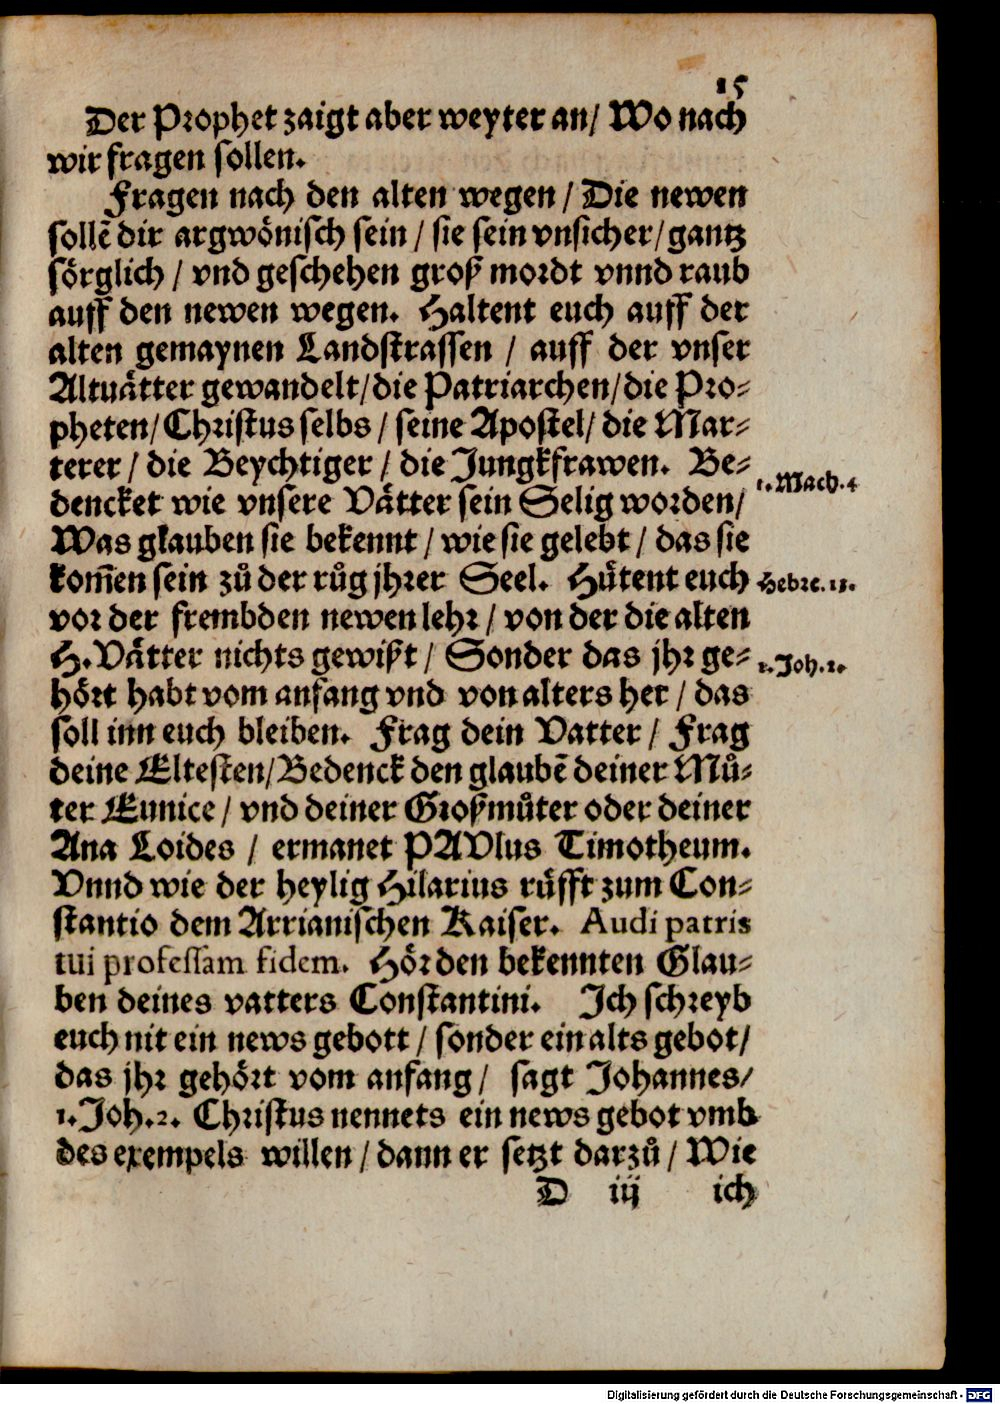 15
Der Prophet zaigt aber weyter an/ Wo nach
wir fragen sollen.
Fragen nach den alten wegen / Die newen
sollē dir argwönisch sein / sie sein vnsicher/ gantz
sörglich / vnd geschehen groß mordt vnnd raub
auff den newen wegen. Haltent euch auff der
alten gemaynen Landstrassen / auff der vnser
Altuätter gewandelt/ die Patriarchen/ die Pro-
pheten/ Christus selbs / seine Apostel/ die Mar-
terer / die Beychtiger / die Jungkfrawen. Be-
1. Mach. 4
dencket wie vnsere Vätter sein Selig worden/
Was glauben sie bekennt / wie sie gelebt / das sie
kom̄en sein zů der růg jhrer Seel. Hütent euch
Hebre. 13.
vor der frembden newen lehr / von der die alten
H. Vätter nichts gewißt / Sonder das jhr ge-
1. Joh. 2.
hört habt vom anfang vnd von alters her / das
soll inn euch bleiben. Frag dein Vatter / Frag
deine Eltesten/ Bedenck den glaubē deiner Můt-
ter Eunice / vnd deiner Großmůter oder deiner
Ana Loides / ermanet PAVlus Timotheum.
Vnnd wie der heylig Hilarius rüfft zum Con-
stantio dem Arrianischen Kaiser. Audi patris
tui professam fidem. Hör den bekennten Glau-
ben deines vatters Constantini. Ich schreyb
euch nit ein news gebott / sonder ein alts gebot/
das jhr gehört vom anfang / sagt Johannes/
1. Joh. 2. Christus nennets ein news gebot vmb
des exempels willen / dann er setzt darzů / Wie
D iij ich
Digitalisierung gefördert durch die Deutsche Forschungsgemeinschaft - DFG